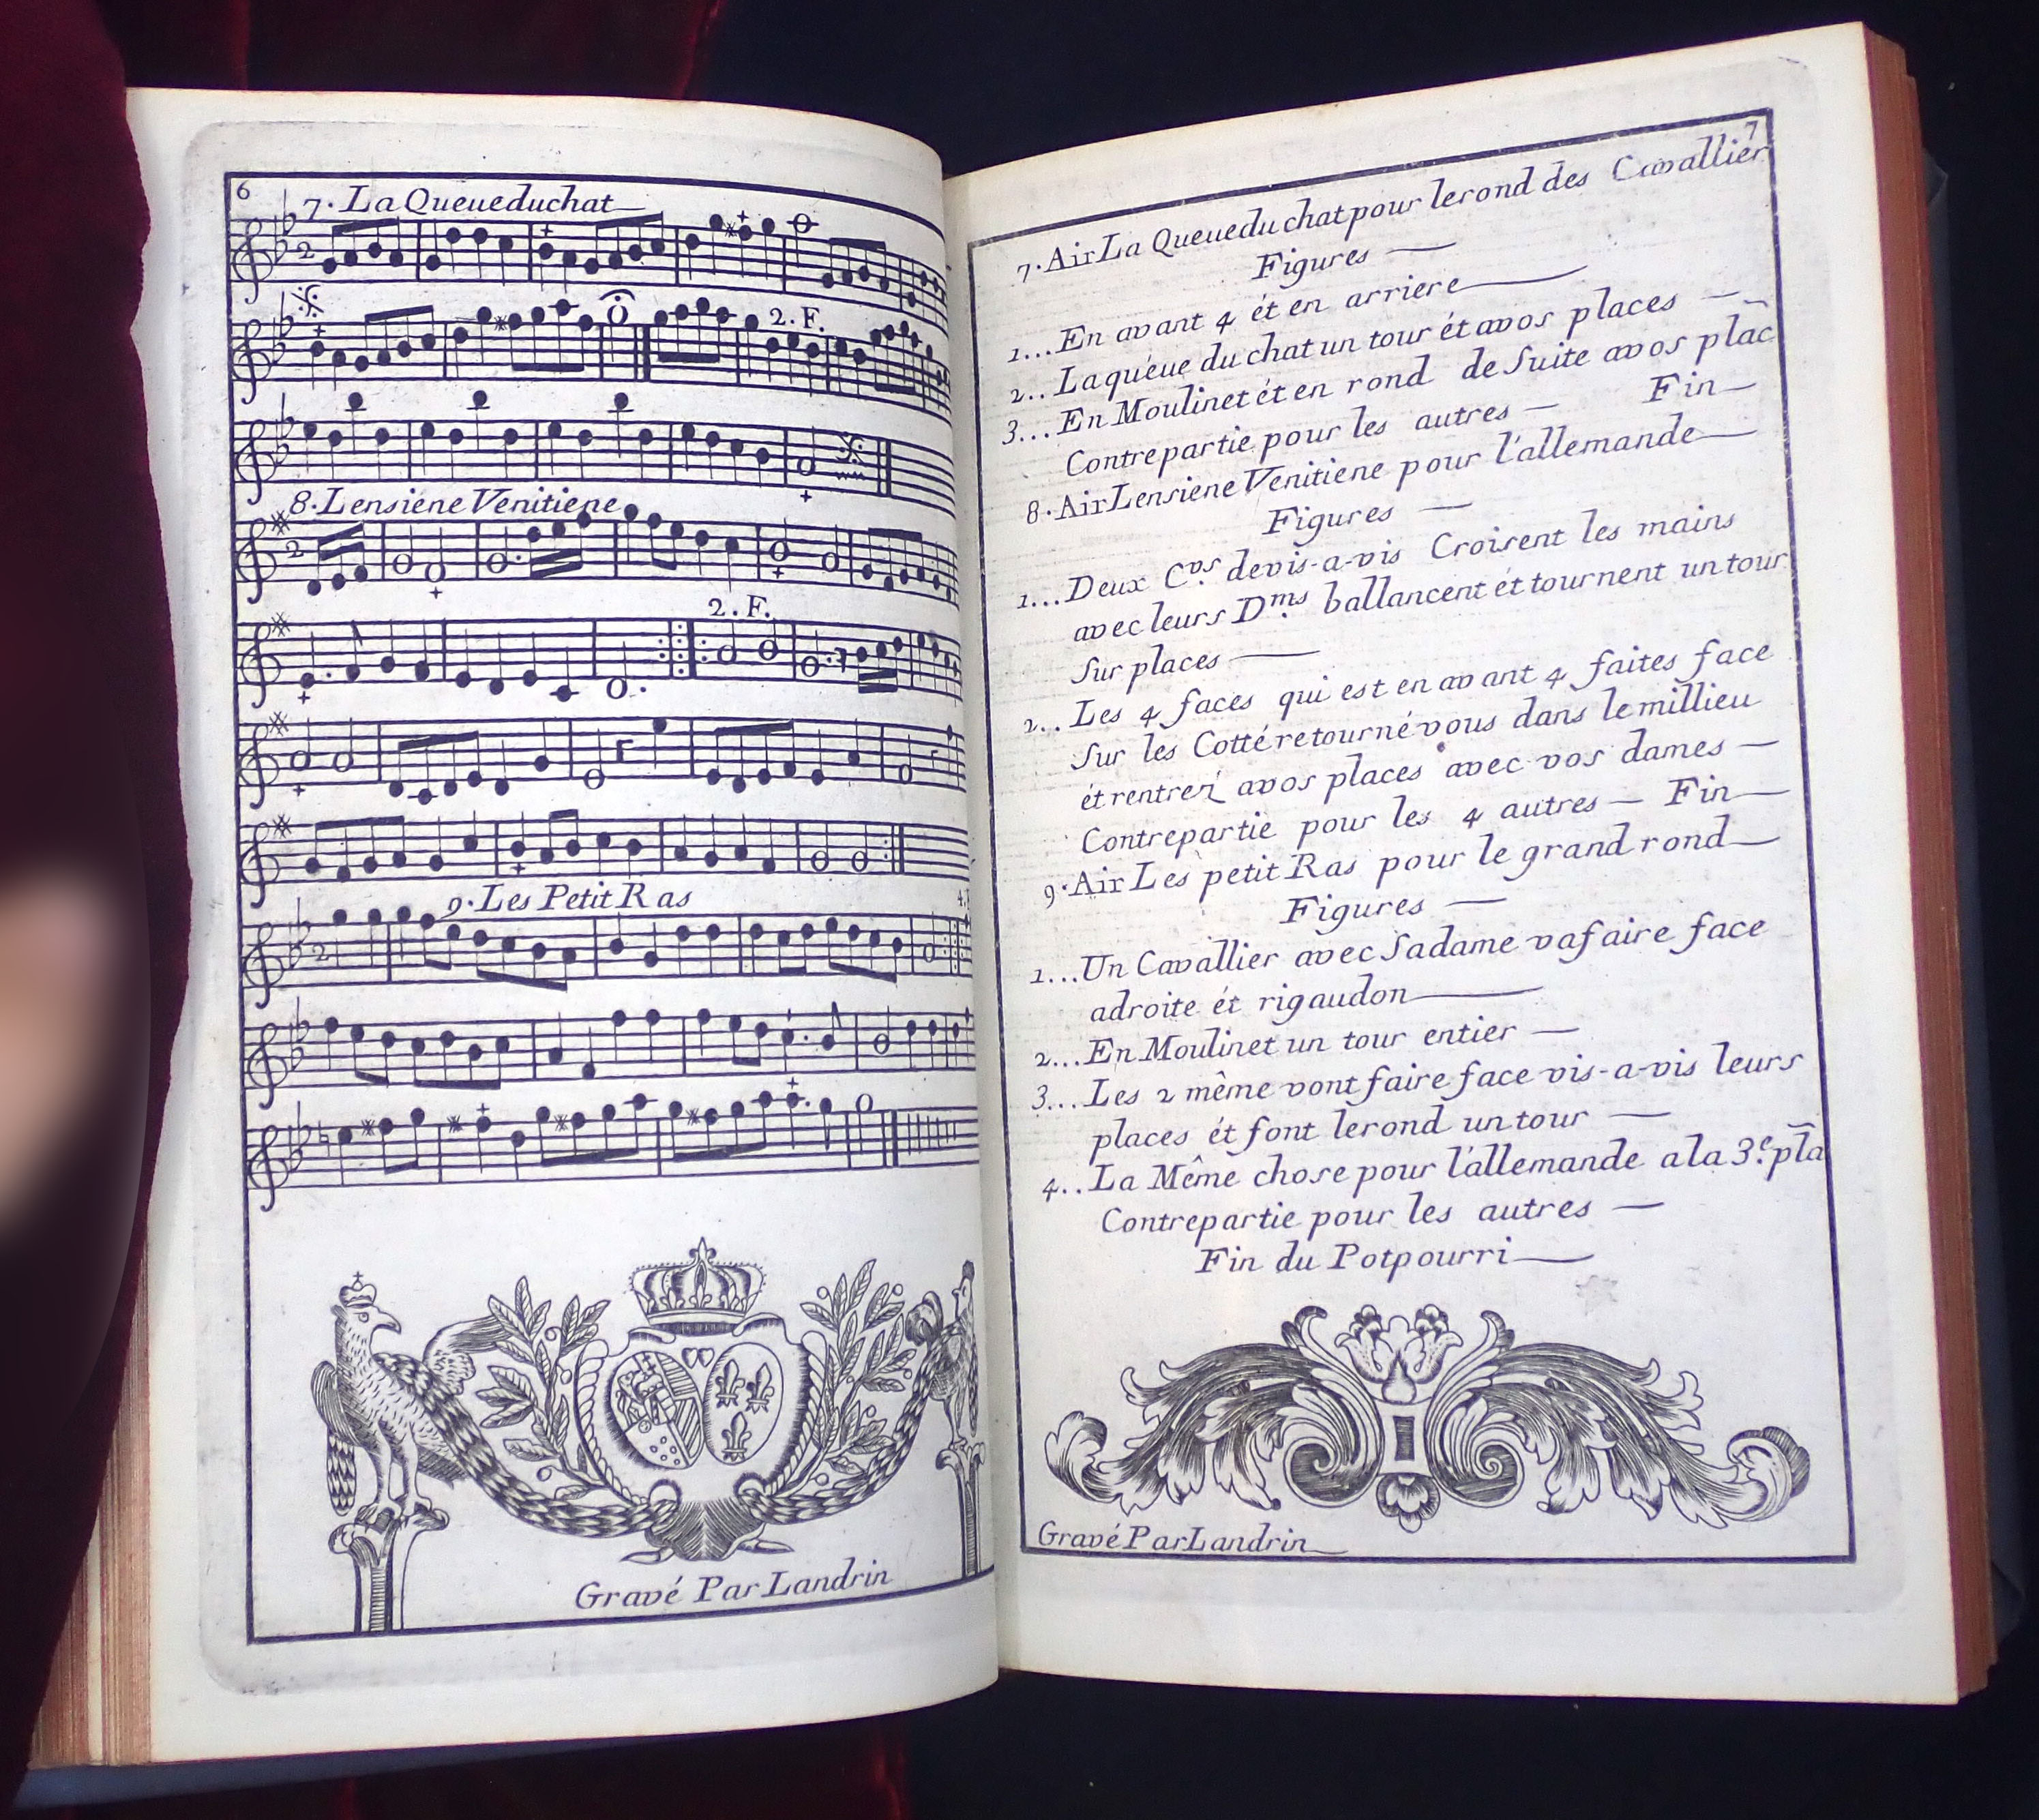 6
7. La Queue du chat
2. F.
8. Lensiéne Venitiene
2. F.
9. Les Petit Ras
Gravé Par Landrin
7
7. Air La Queue du chat pour le rond des Cavallier
Figures
1... En avant 4 ét en arriere
2.. La quéue du chat un tour ét avos places
3... En Moulinet ét en rond de Suite avos plac̄
Contrepartie pour les autres Fin
8. Air Lensiene Venitiene pour l'allemande
Figures
1... Deux C.vrs devis-a-vis Croisent les mains
avec leurs D.ms ballancent ét tournent un tour
Sur places
2.. Les 4 faces qui est en avant 4 faites face
Sur les Cotté retourné vous dans le millieu
ét rentrez avos places avec vos dames
Contrepartie pour les 4 autres Fin
9. Air Les petit Ras pour le grand rond
Figures
1... Un Cavallier avec Sa dame va faire face
adroite ét rigaudon
2... En Moulinet un tour entier
3... Les 2 même vont faire face vis-a-vis leurs
places ét font le rond un tour
4.. La Même chose pour l'allemande ala 3.e plā
Contrepartie pour les autres
Fin du Potpourri
Gravé Par Landrin